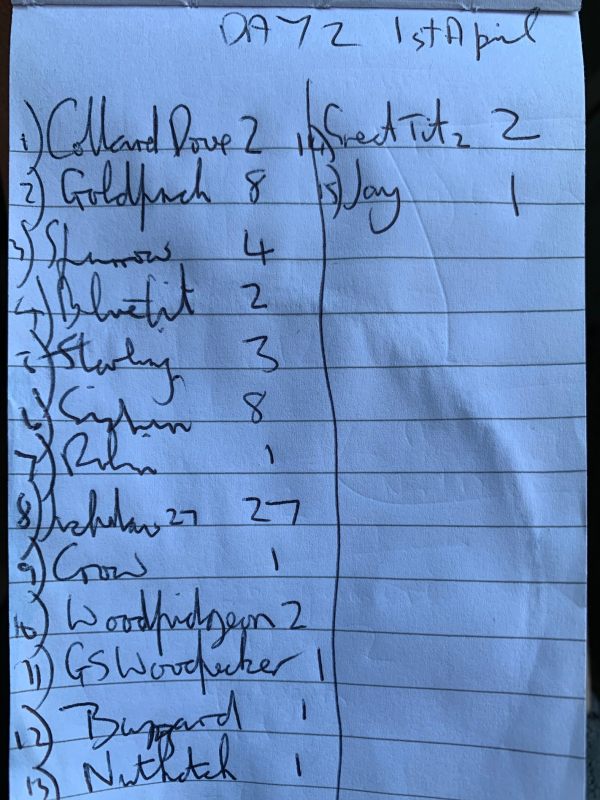 DAY 2 1st April
1) Collard Dove 2
2) Goldfinch 8
3) Sparrow 4
4) Bluetit 2
5) Starling 3
6) 8
7) Robin 1
8) Jackdaw 27 27
9) Crow 1
10) Woodpidgeon 2
11) GS Woodpecker 1
12) Buzzard 1
13) Nuthatch 1
14) Great Tit 2 2
15) Jay 1